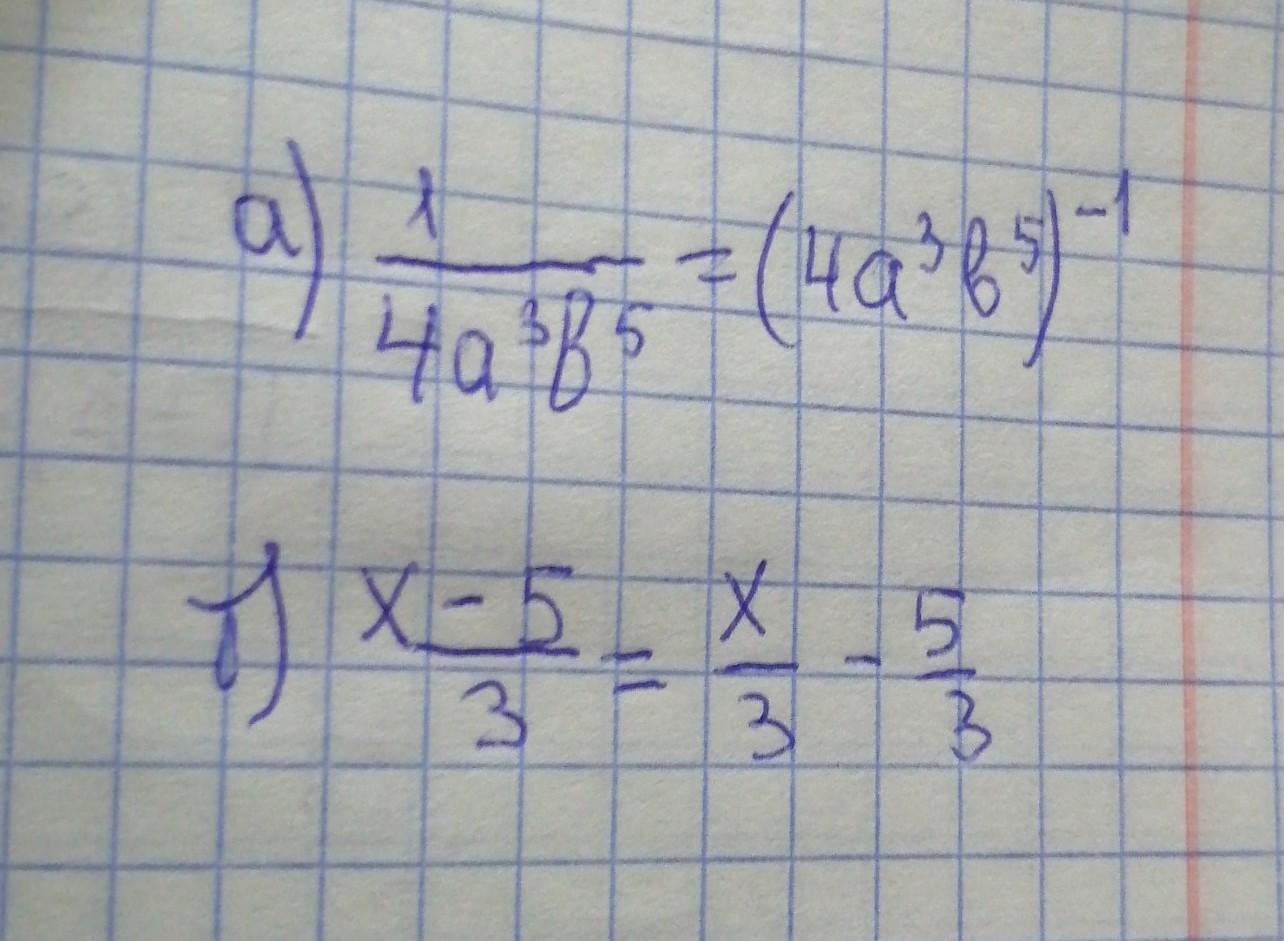 а) 1/(4a³b⁵) = (4a³b⁵)⁻¹
б) (x - 5)/3 = x/3 - 5/3